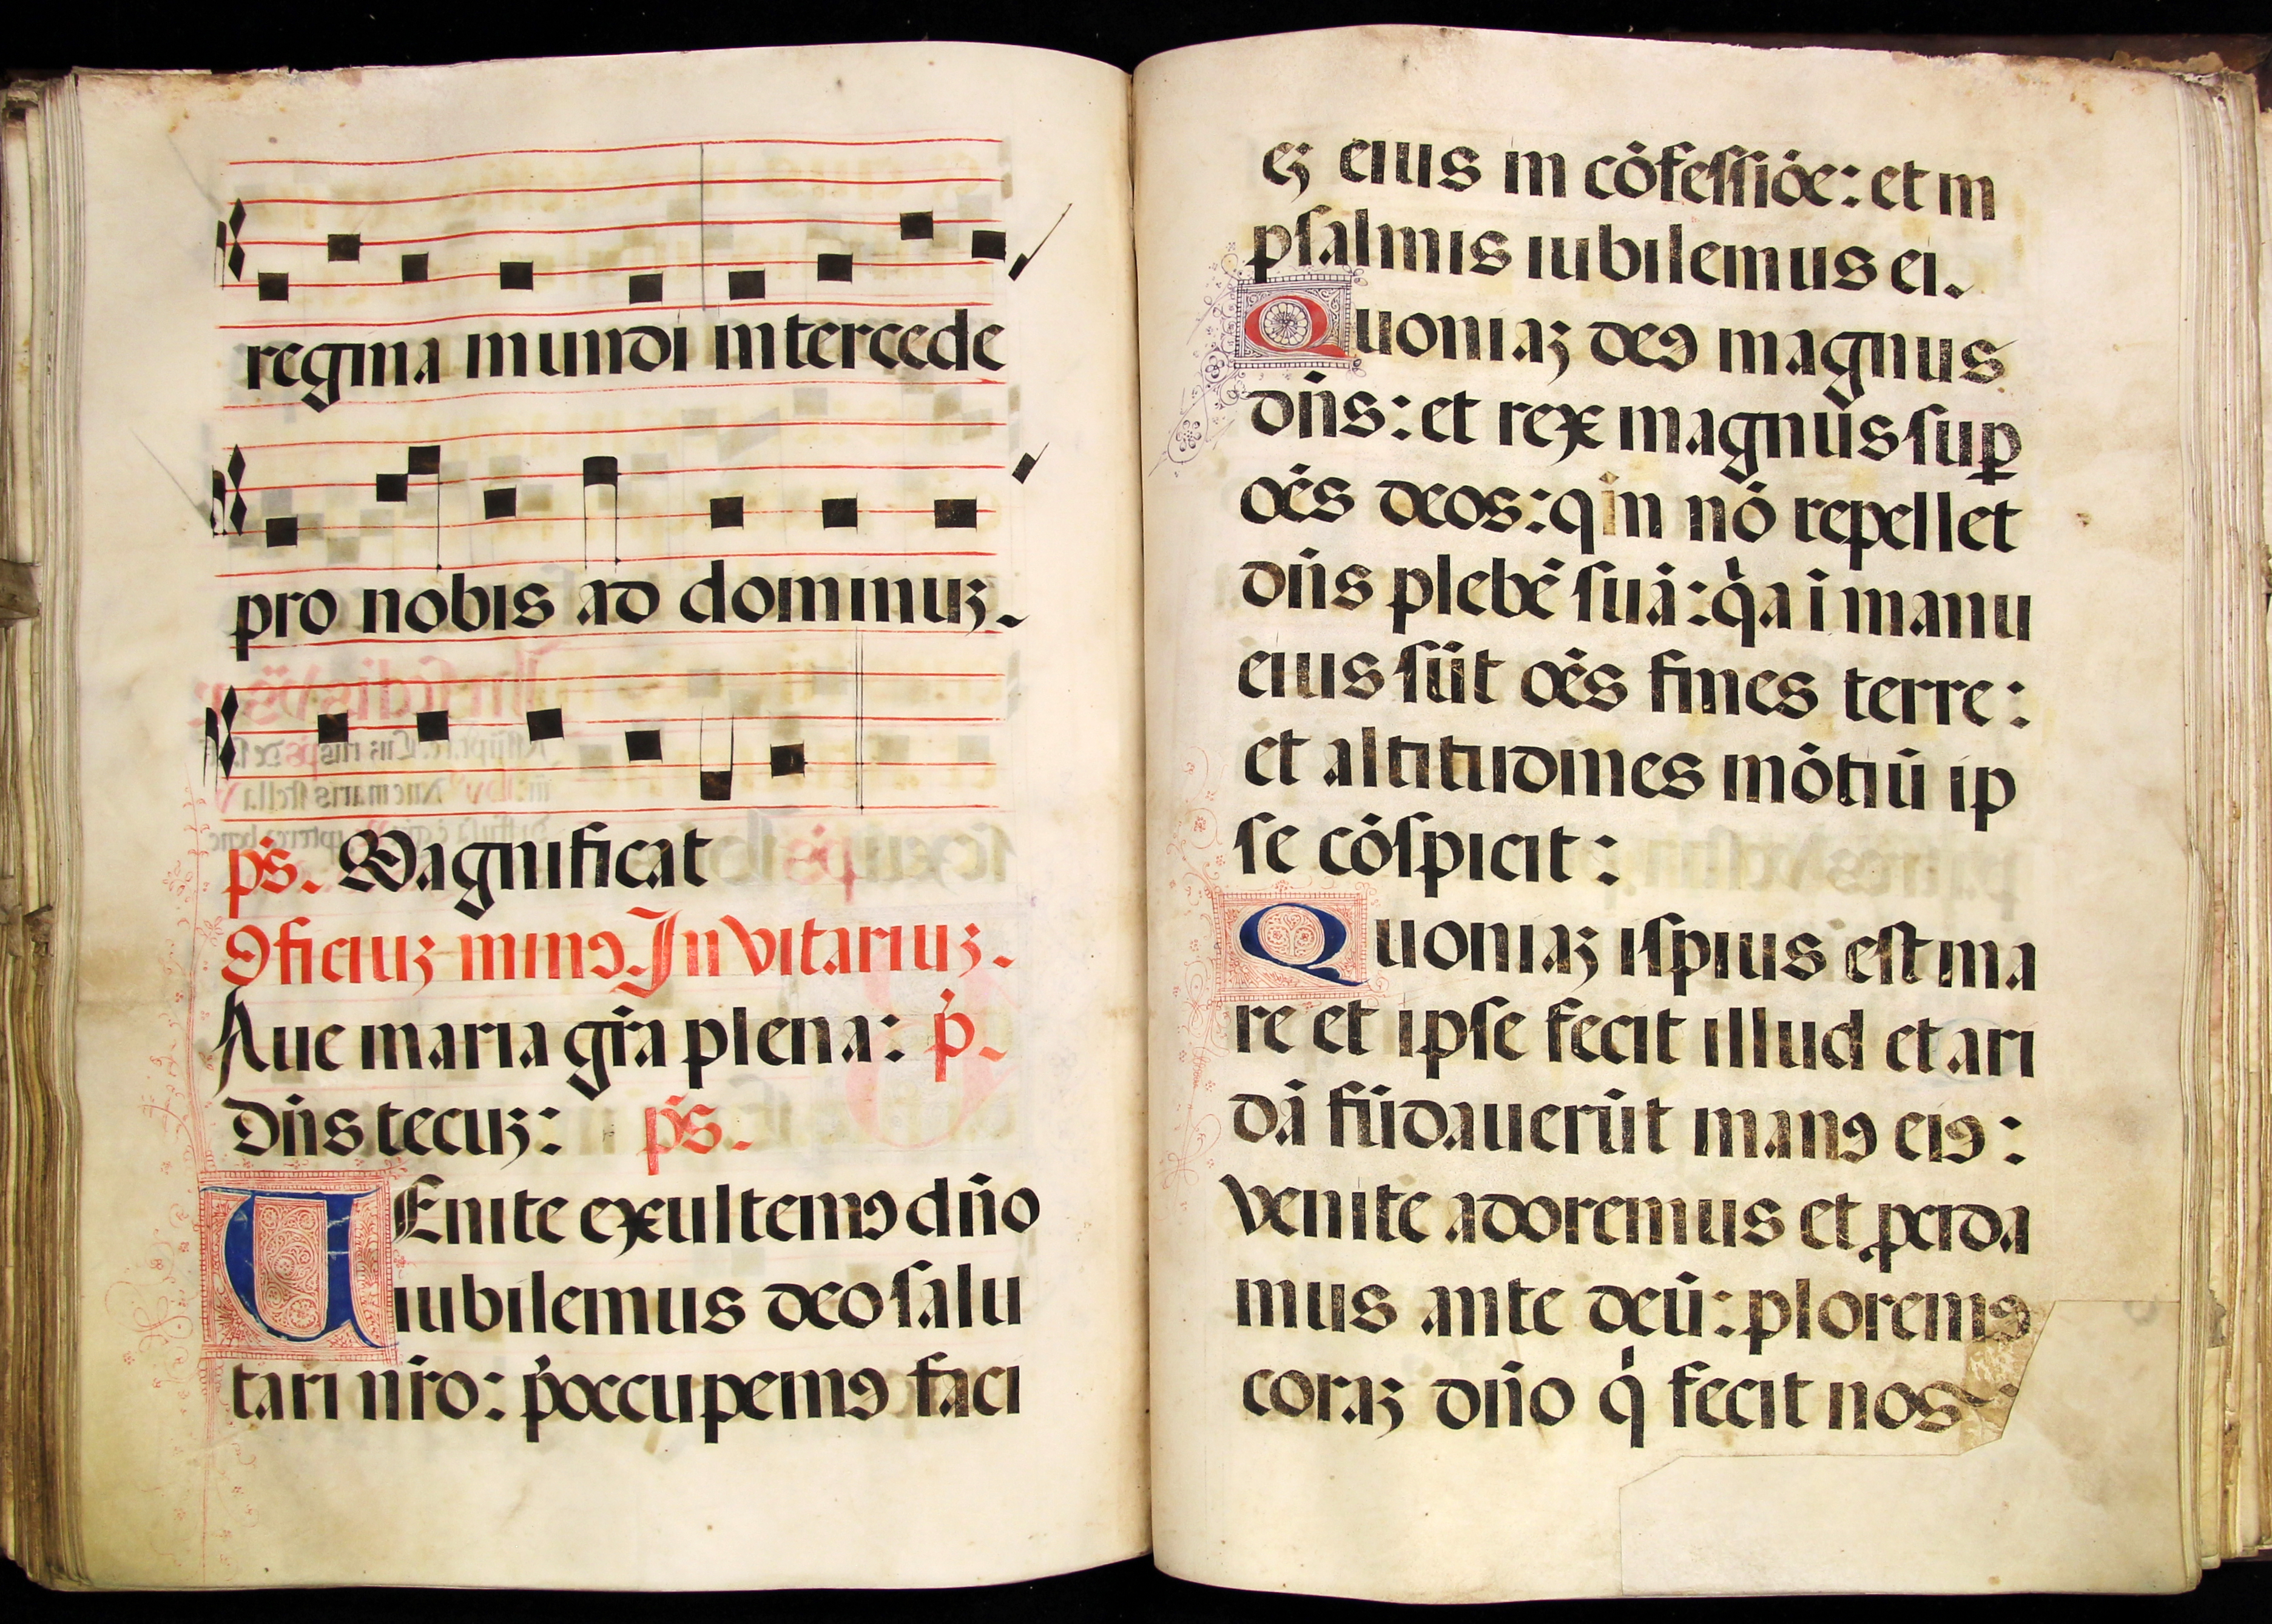 regina mundi intercede
pro nobis ad dominuȝ.
p̄s. Magnificat
Oficiuȝ minꝰ. Inuitariuȝ.
Aue maria gr̄a plena: p̄.
Dn̄s tecuȝ: p̄s.
UEnite exultemꝰ dn̄o
iubilemus deo salu
tari nr̄o: p̄occupemꝰ faci
eȝ eius in cōfessiōe: et in
psalmis iubilemus ei.
Quoniaȝ deꝰ magnus
dn̄s: et rex magnus suꝑ
oēs deos: qin nō repellet
dn̄s plebē suā: qͥa ī manu
eius sūt oēs fines terre:
et altitudines mōtiū ip
se cōspicit:
Quoniaȝ ispius est ma
re et ipse fecit illud et ari
dā fūdauerūt manꝰ eiꝰ:
venite adoremus et ꝓcida
mus ante deū: ploremꝰ
coraȝ dn̄o qͥ fecit nos